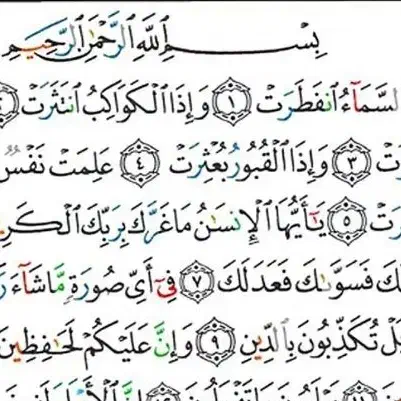 بِسْمِ ٱللَّهِ ٱلرَّحْمَٰنِ ٱلرَّحِيمِ
ٱلسَّمَآءُ ٱنفَطَرَتْ ١ وَإِذَا ٱلْكَوَاكِبُ ٱنتَثَرَتْ
تْ ٣ وَإِذَا ٱلْقُبُورُ بُعْثِرَتْ ٤ عَلِمَتْ نَفْسٌ
رَتْ ٥ يَٰٓأَيُّهَا ٱلْإِنسَٰنُ مَا غَرَّكَ بِرَبِّكَ ٱلْكَرِ
كَ فَسَوَّىٰكَ فَعَدَلَكَ ٧ فِىٓ أَىِّ صُورَةٍ مَّا شَآءَ رَ
بَلْ تُكَذِّبُونَ بِٱلدِّينِ ٩ وَإِنَّ عَلَيْكُمْ لَحَٰفِظِينَ